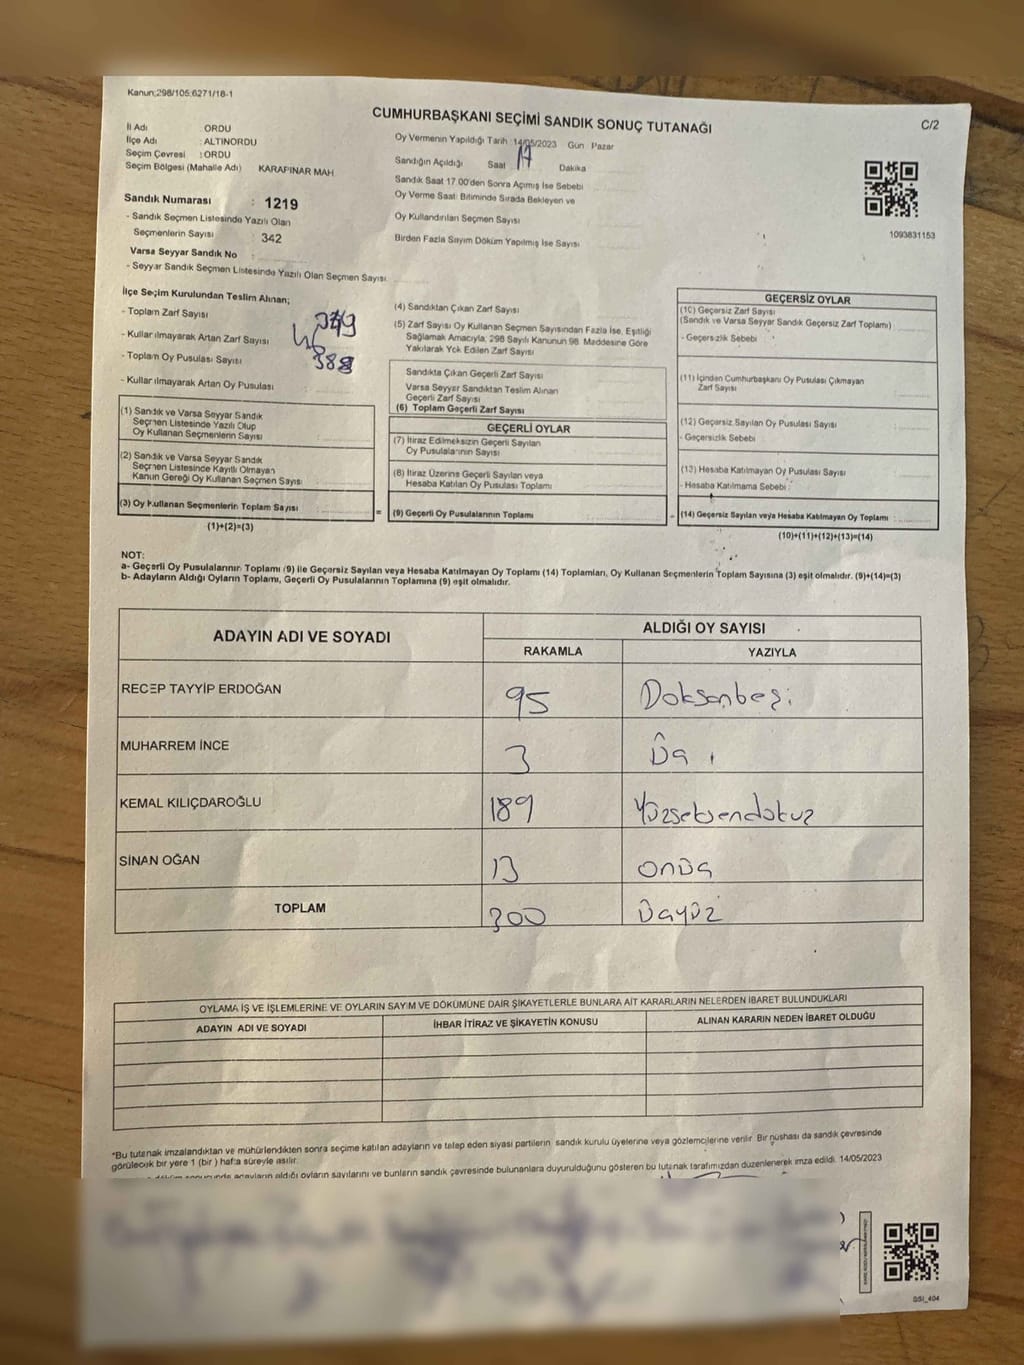 Kanun:298/105.6271/18-1
CUMHURBAŞKANI SEÇİMİ SANDIK SONUÇ TUTANAĞI
C/2
İl Adı : ORDU
İlçe Adı : ALTINORDU
Seçim Çevresi : ORDU
Seçim Bölgesi (Mahalle Adı) KARAPINAR MAH
Sandık Numarası : 1219
- Sandık Seçmen Listesinde Yazılı Olan
Seçmenlerin Sayısı : 342
Varsa Seyyar Sandık No :
- Seyyar Sandık Seçmen Listesinde Yazılı Olan Seçmen Sayısı
Oy Vermenin Yapıldığı Tarih :14/05/2023 Gün : Pazar
Sandığın Açıldığı Saat 17 Dakika
Sandık Saat 17.00'den Sonra Açımış İse Sebebi
Oy Verme Saati Bitiminde Sırada Bekleyen ve
Oy Kullandırılan Seçmen Sayısı
Birden Fazla Sayım Döküm Yapılmış İse Sayısı
1093831153
İlçe Seçim Kurulundan Teslim Alınan;
- Toplam Zarf Sayısı
- Kullanılmayarak Artan Zarf Sayısı
- Toplam Oy Pusulası Sayısı
- Kullanılmayarak Artan Oy Pusulası
(1) Sandık ve Varsa Seyyar Sandık
Seçmen Listesinde Yazılı Olup
Oy Kullanan Seçmenlerin Sayısı
(2) Sandık ve Varsa Seyyar Sandık
Seçmen Listesinde Kayıtlı Olmayan
Kanun Gereği Oy Kullanan Seçmen Sayısı
(3) Oy Kullanan Seçmenlerin Toplam Sayısı
(1)+(2)=(3)
(4) Sandıktan Çıkan Zarf Sayısı
(5) Zarf Sayısı Oy Kullanan Seçmen Sayısından Fazla İse, Eşitliği
Sağlamak Amacıyla, 298 Sayılı Kanunun 98. Maddesine Göre
Yakılarak Yok Edilen Zarf Sayısı
Sandıkta Çıkan Geçerli Zarf Sayısı
Varsa Seyyar Sandıktan Teslim Alınan
Geçerli Zarf Sayısı
(6) Toplam Geçerli Zarf Sayısı
GEÇERLİ OYLAR
(7) İtiraz Edilmeksizin Geçerli Sayılan
Oy Pusulalarının Sayısı
(8) İtiraz Üzerine Geçerli Sayılan veya
Hesaba Katılan Oy Pusulası Toplamı
= (9) Geçerli Oy Pusulalarının Toplamı
GEÇERSİZ OYLAR
(10) Geçersiz Zarf Sayısı
(Sandık ve Varsa Seyyar Sandık Geçersiz Zarf Toplamı)
- Geçersizlik Sebebi
(11) İçinden Cumhurbaşkanı Oy Pusulası Çıkmayan
Zarf Sayısı
(12) Geçersiz Sayılan Oy Pusulası Sayısı
- Geçersizlik Sebebi
(13) Hesaba Katılmayan Oy Pusulası Sayısı
- Hesaba Katılmama Sebebi :
(14) Geçersiz Sayılan veya Hesaba Katılmayan Oy Toplamı
(10)+(11)+(12)+(13)=(14)
NOT:
a- Geçerli Oy Pusulalarının Toplamı (9) ile Geçersiz Sayılan veya Hesaba Katılmayan Oy Toplamı (14) Toplamları, Oy Kullanan Seçmenlerin Toplam Sayısına (3) eşit olmalıdır. (9)+(14)=(3)
b- Adayların Aldığı Oyların Toplamı, Geçerli Oy Pusulalarının Toplamına (9) eşit olmalıdır.
ADAYIN ADI VE SOYADI
ALDIĞI OY SAYISI
RAKAMLA YAZIYLA
RECEP TAYYİP ERDOĞAN 95 Doksanbeş
MUHARREM İNCE 3 Üç
KEMAL KILIÇDAROĞLU 189 Yüzseksendokuz
SİNAN OĞAN 13 onüç
TOPLAM 300 Üçyüz
OYLAMA İŞ VE İŞLEMLERİNE VE OYLARIN SAYIM VE DÖKÜMÜNE DAİR ŞİKAYETLERLE BUNLARA AİT KARARLARIN NELERDEN İBARET BULUNDUKLARI
ADAYIN ADI VE SOYADI İHBAR İTİRAZ VE ŞİKAYETİN KONUSU ALINAN KARARIN NEDEN İBARET OLDUĞU
*Bu tutanak imzalandıktan ve mühürlendikten sonra seçime katılan adayların ve talep eden siyasi partilerin, sandık kurulu üyelerine veya gözlemcilerine verilir. Bir nüshası da sandık çevresinde
görülecek bir yere 1 (bir) hafta süreyle asılır.
adayların aldığı oyların sayılarını ve bunların sandık çevresinde bulunanlara duyurulduğunu gösteren bu tutanak tarafımızdan düzenlenerek imza edildi. 14/05/2023